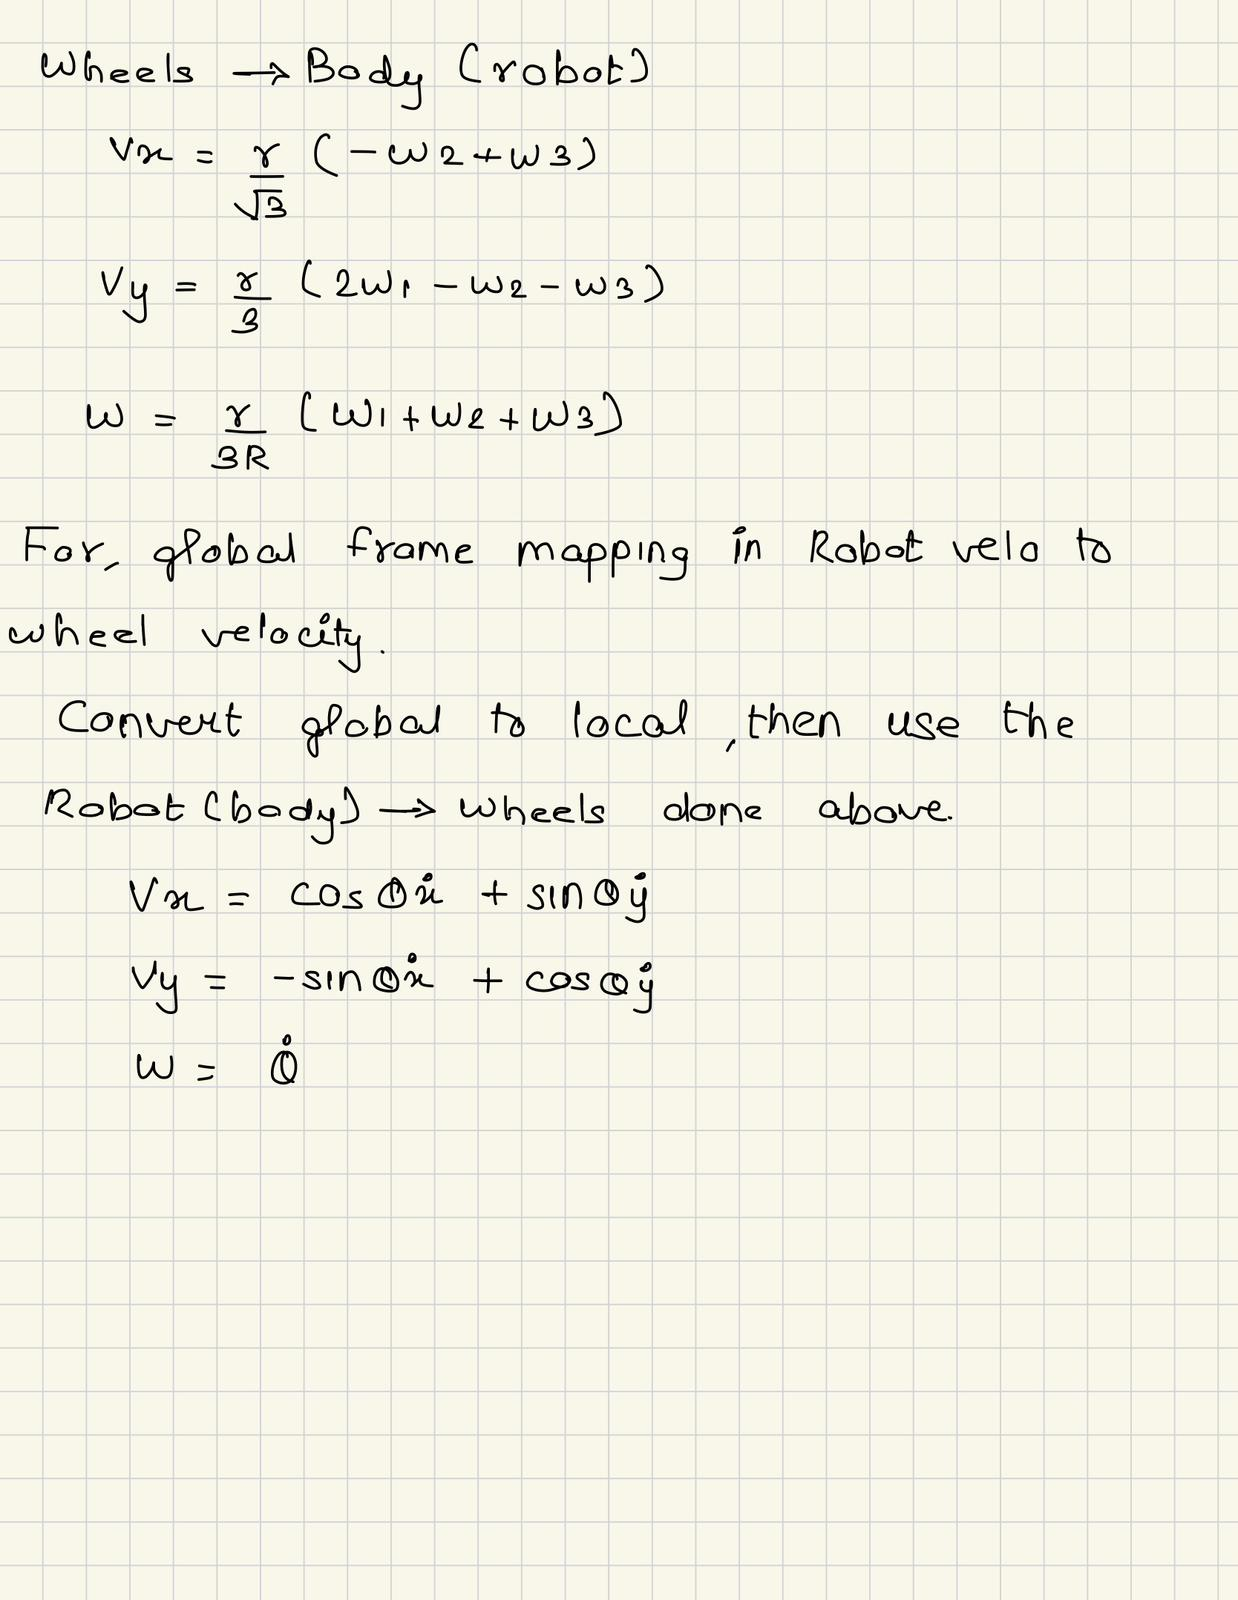 Wheels → Body (robot)
Vx = r/√3 (-ω2 + ω3)
Vy = r/3 (2ω1 - ω2 - ω3)
ω = r/3R (ω1 + ω2 + ω3)
For, global frame mapping in Robot velo to
wheel velocity.
Convert global to local, then use the
Robot (body) → Wheels done above.
Vx = cosθẋ + sinθẏ
Vy = -sinθẋ + cosθẏ
ω = θ̇